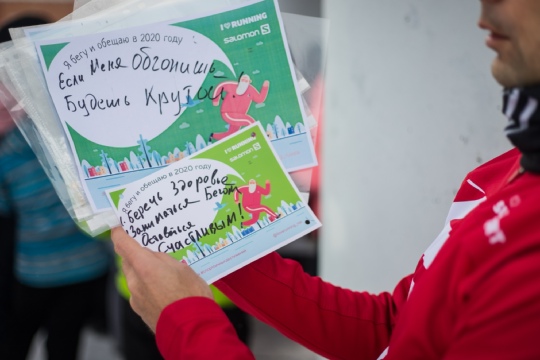 I ♥ RUNNING
SALOMON S
Я бегу и обещаю в 2020 году
Если Меня Обгонишь
Будешь Крутой!
I ♥ RUNNING
SALOMON S
Я бегу и обещаю в 2020 году
Беречь Здоровье
Заниматься Бегом
Остаться
Счастливым!